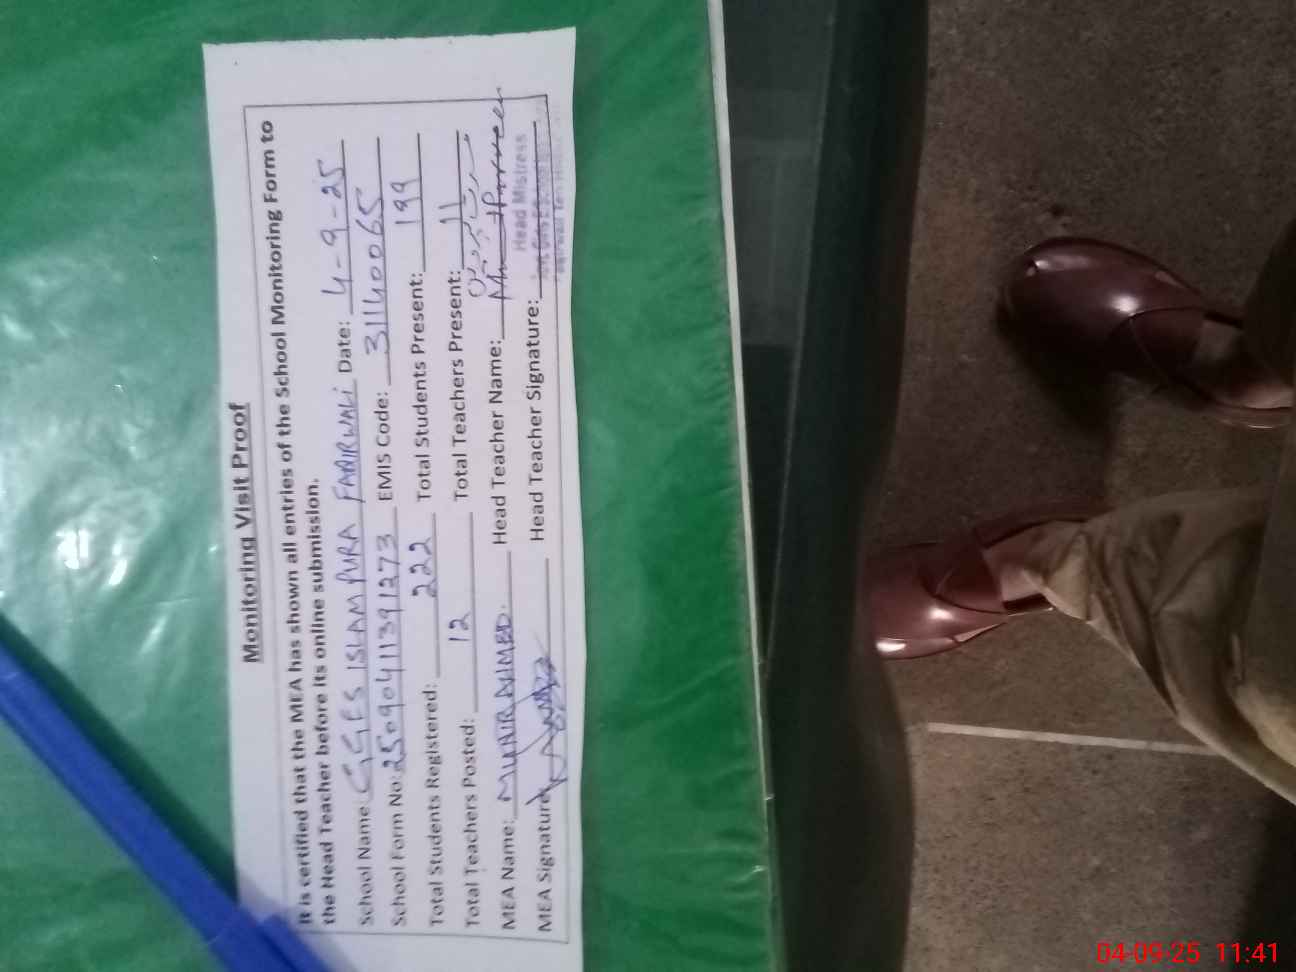 Monitoring Visit Proof
It is certified that the MEA has shown all entries of the School Monitoring Form to
the Head Teacher before its online submission.
School Name GGES ISLAMPURA FAQIRWALI Date: 4-9-25
School Form No: 25090411391273 EMIS Code: 31140065
Total Students Registered: 222 Total Students Present: 199
Total Teachers Posted: 12 Total Teachers Present: 11
MEA Name: MUNIR AHMED. Head Teacher Name:
MEA Signature Head Teacher Signature:
Head Mistress
04-09-25 11:41